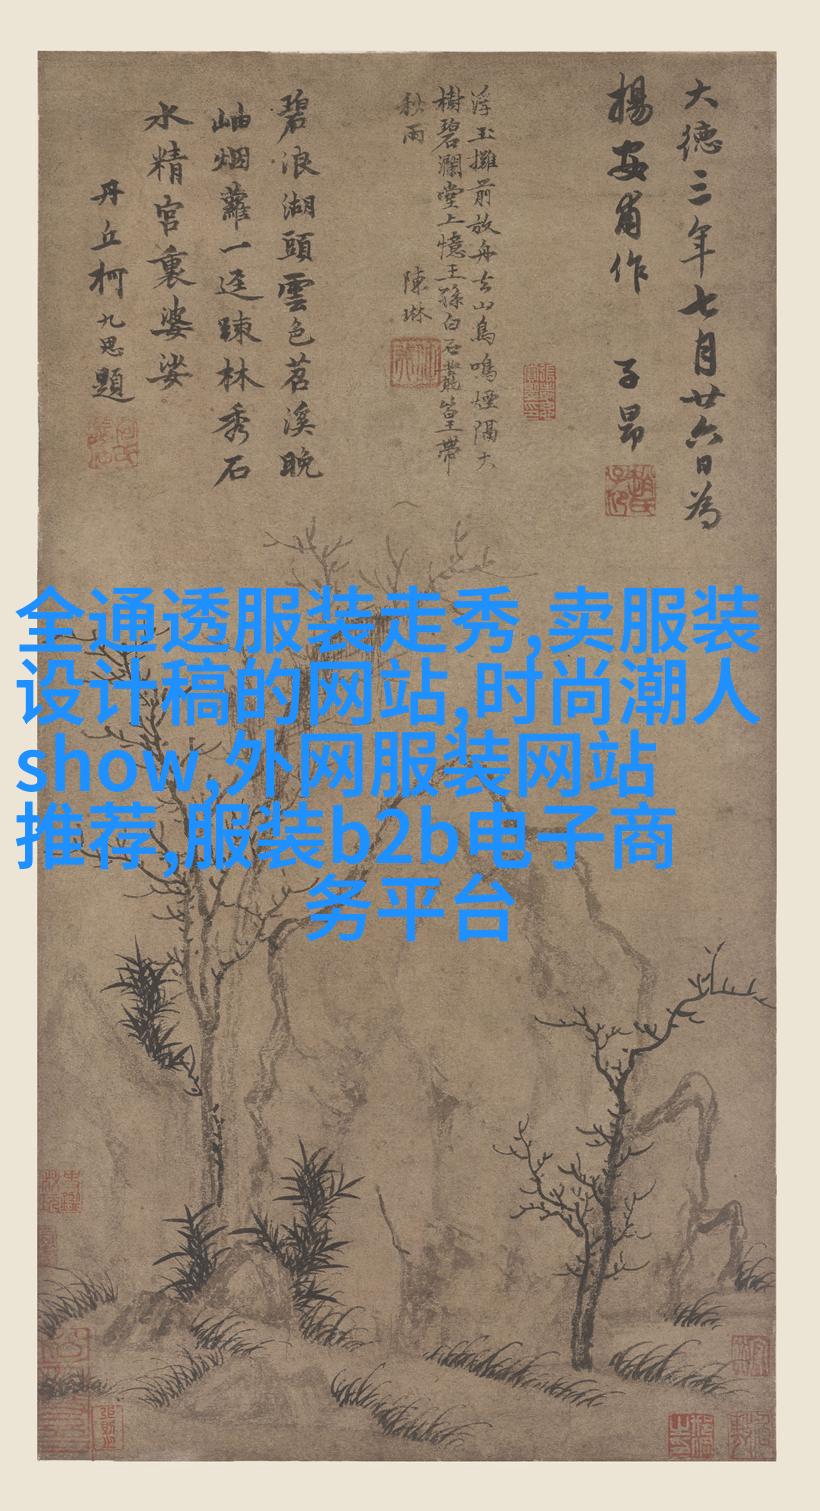 大德三年七月廿六日為
楊安甫作 子昂
浮玉攤前放舟去山鳥鳴煙隔大
樹碧瀾堂上憶王孫白石叢篁帶
秋雨 陳琳
碧浪湖頭雲色苕溪晚
岫烟蘿一逕踈林秀石
水精宮裏婆娑
丹丘柯九思題
全通透服装走秀,卖服装
设计稿的网站,时尚潮人
show,外网服装网站
推荐,服装b2b电子商
务平台